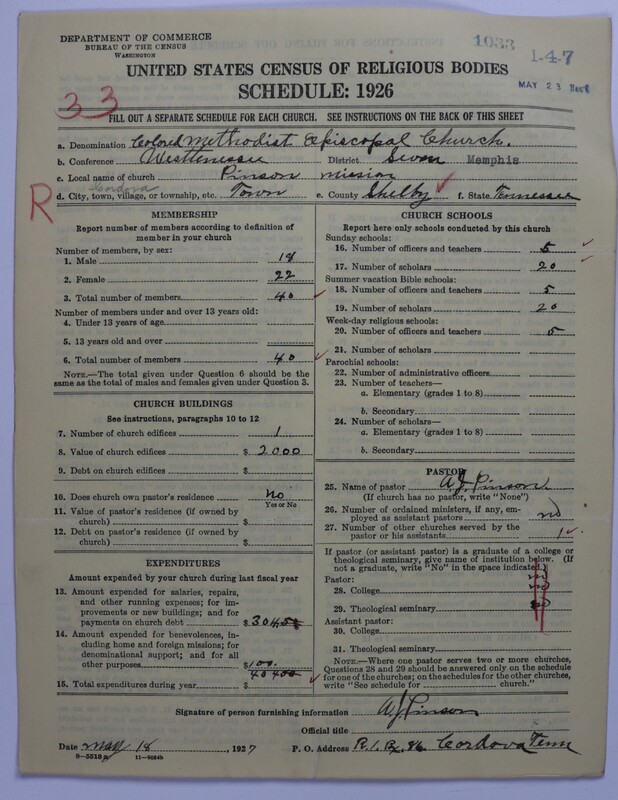 DEPARTMENT OF COMMERCE
BUREAU OF THE CENSUS
WASHINGTON
1033
1-4-7
MAY 23
UNITED STATES CENSUS OF RELIGIOUS BODIES
SCHEDULE: 1926
33
FILL OUT A SEPARATE SCHEDULE FOR EACH CHURCH. SEE INSTRUCTIONS ON THE BACK OF THIS SHEET
a. Denomination Colored Methodist Episcopal Church.
b. Conference Westtennessee District Memphis
c. Local name of church Pinson mission
Cordova
d. City, town, village, or township, etc. Town e. County Shelby f. State Tennessee
R
MEMBERSHIP
Report number of members according to definition of
member in your church
Number of members, by sex:
1. Male 18
2. Female 22
3. Total number of members 40
Number of members under and over 13 years old:
4. Under 13 years of age
5. 13 years old and over
6. Total number of members 40
NOTE.—The total given under Question 6 should be
same as the total of males and females given under Question 3.
CHURCH BUILDINGS
See instructions, paragraphs 10 to 12
7. Number of church edifices 1
8. Value of church edifices $ 2000
9. Debt on church edifices $
10. Does church own pastor's residence No
Yes or No
11. Value of pastor's residence (if owned by
church) $
12. Debt on pastor's residence (if owned by
church) $
EXPENDITURES
Amount expended by your church during last fiscal year
13. Amount expended for salaries, repairs,
and other running expenses; for im-
provements or new buildings; and for
payments on church debt $
14. Amount expended for benevolences, in-
cluding home and foreign missions; for
denominational support; and for all
other purposes $ 100.
15. Total expenditures during year $
CHURCH SCHOOLS
Report here only schools conducted by this church
Sunday schools:
16. Number of officers and teachers 5
17. Number of scholars 20
Summer vacation Bible schools:
18. Number of officers and teachers 5
19. Number of scholars 20
Week-day religious schools:
20. Number of officers and teachers 5
21. Number of scholars
Parochial schools:
22. Number of administrative officers
23. Number of teachers—
a. Elementary (grades 1 to 8)
b. Secondary
24. Number of scholars—
a. Elementary (grades 1 to 8)
b. Secondary
PASTOR
25. Name of pastor A.J. Pinson
(If church has no pastor, write "None")
26. Number of ordained ministers, if any, em-
ployed as assistant pastors no
27. Number of other churches served by the
pastor or his assistants 1
If pastor (or assistant pastor) is a graduate of a college or
theological seminary, give name of institution below. (If
not a graduate, write "No" in the space indicated.)
Pastor:
28. College no
29. Theological seminary no
Assistant pastor:
30. College
31. Theological seminary
NOTE.—Where one pastor serves two or more churches,
Questions 28 and 29 should be answered only on the schedule
for one of the churches; on the schedules for the other churches,
write "See schedule for church."
Signature of person furnishing information A.J. Pinson
Official title
Date May 18, 1927 P. O. Address R. 1. Bx. 86 Cordova Tenn